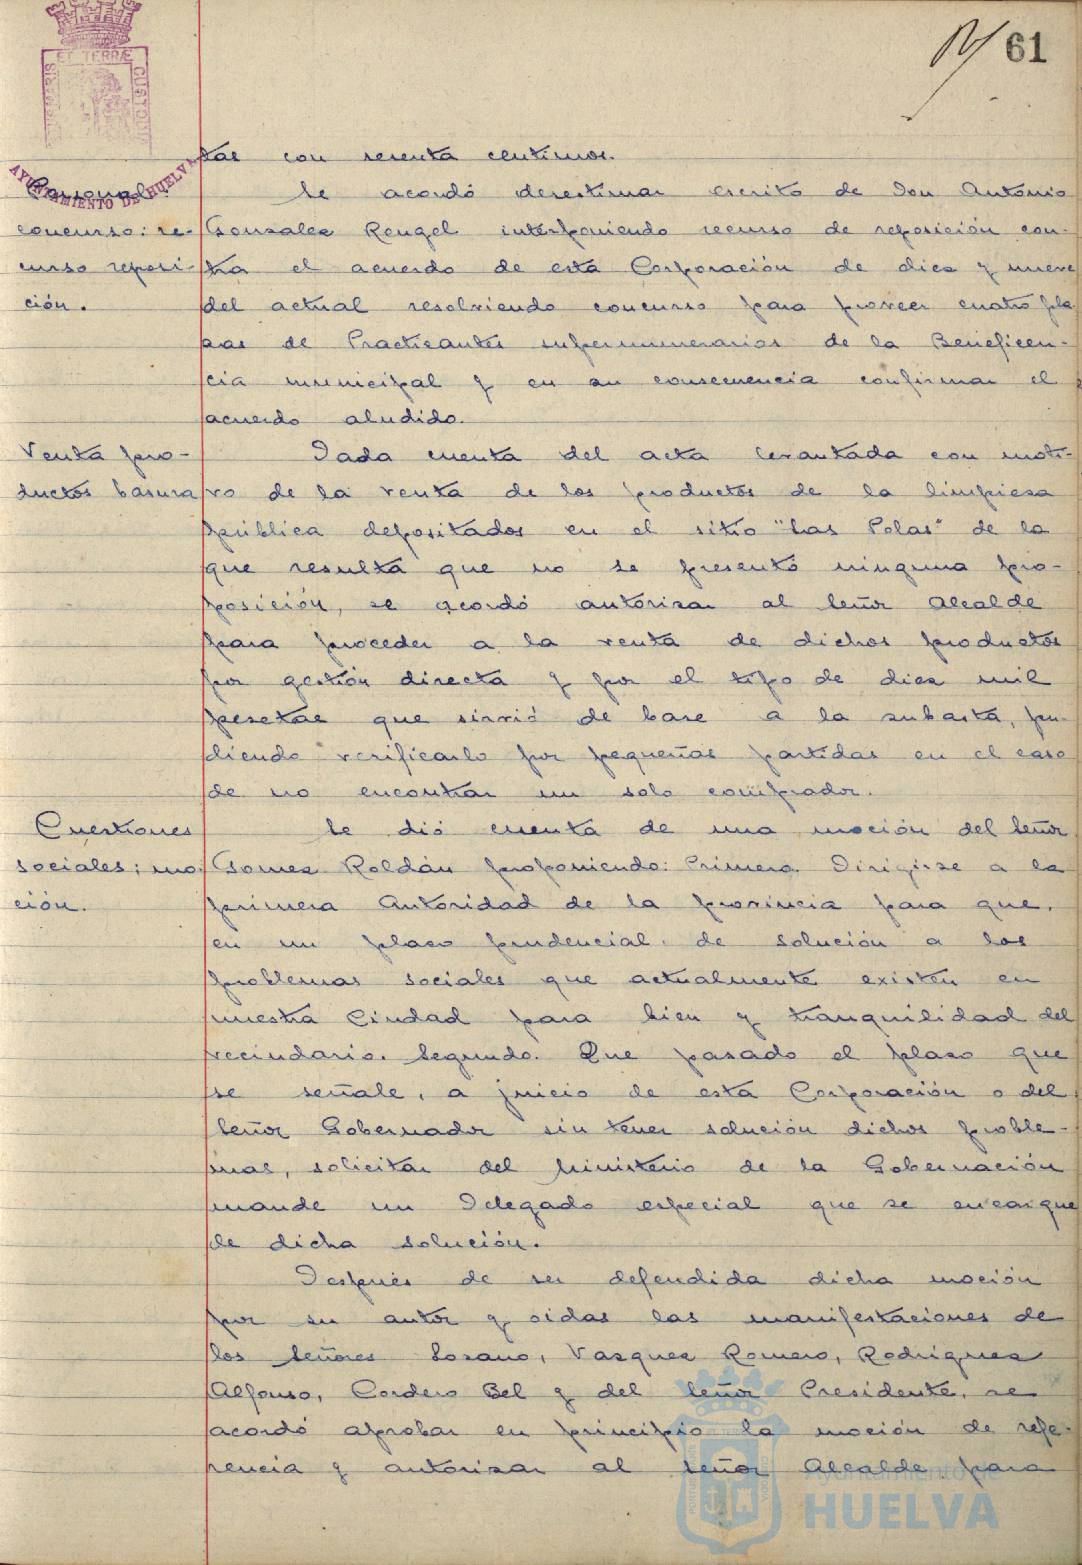 61
ET TERRÆ
CUSTODIA
AYUNTAMIENTO DE HUELVA
tas con sesenta centimos.
Personal;
concurso: re-
curso reposi-
ción.
Se acordó desestimar escrito de Don Antonio
Gonzalez Rengel interponiendo recurso de reposición con-
tra el acuerdo de esta Corporación de diez y nueve
del actual resolviendo concurso para proveer cuatro pla
zas de Practicantes supernumerarios de la Beneficen-
cia municipal y en su consecuencia confirmar el
acuerdo aludido.
Venta pro-
ductos basura
Dada cuenta del acta levantada con moti-
vo de la venta de los productos de la limpieza
pública depositados en el sitio "Las Polas" de la
que resulta que no se presentó ninguna pro-
posición, se acordó autorizar al Señor Alcalde
para proceder a la venta de dichos productos
por gestión directa y por el tipo de diez mil
pesetas que sirvió de base a la subasta, pu-
diendo verificarlo por pequeñas partidas en el caso
de no encontrar un solo comprador.
Cuestiones
sociales; mo-
ción.
Se dió cuenta de una moción del Señor
Gomez Roldán proponiendo: Primero. Dirigirse a la
primera Autoridad de la provincia para que,
en un plazo prudencial, de solución a los
problemas sociales que actualmente existen en
nuestra Ciudad para bien y tranquilidad del
vecindario. Segundo. Que pasado el plazo que
se señale, a juicio de esta Corporación o del
Señor Gobernador sin tener solución dichos proble-
mas, solicitar del Ministerio de la Gobernación
mande un Delegado especial que se encargue
de dicha solución.
Despues de ser defendida dicha moción
por su autor y oidas las manifestaciones de
los Señores Lozano, Vazquez Romero, Rodriguez
Alfonso, Cordero Bel y del Señor Presidente, se
acordó aprobar en principio la moción de refe-
rencia y autorizar al Señor Alcalde para
Ayuntamiento de
HUELVA